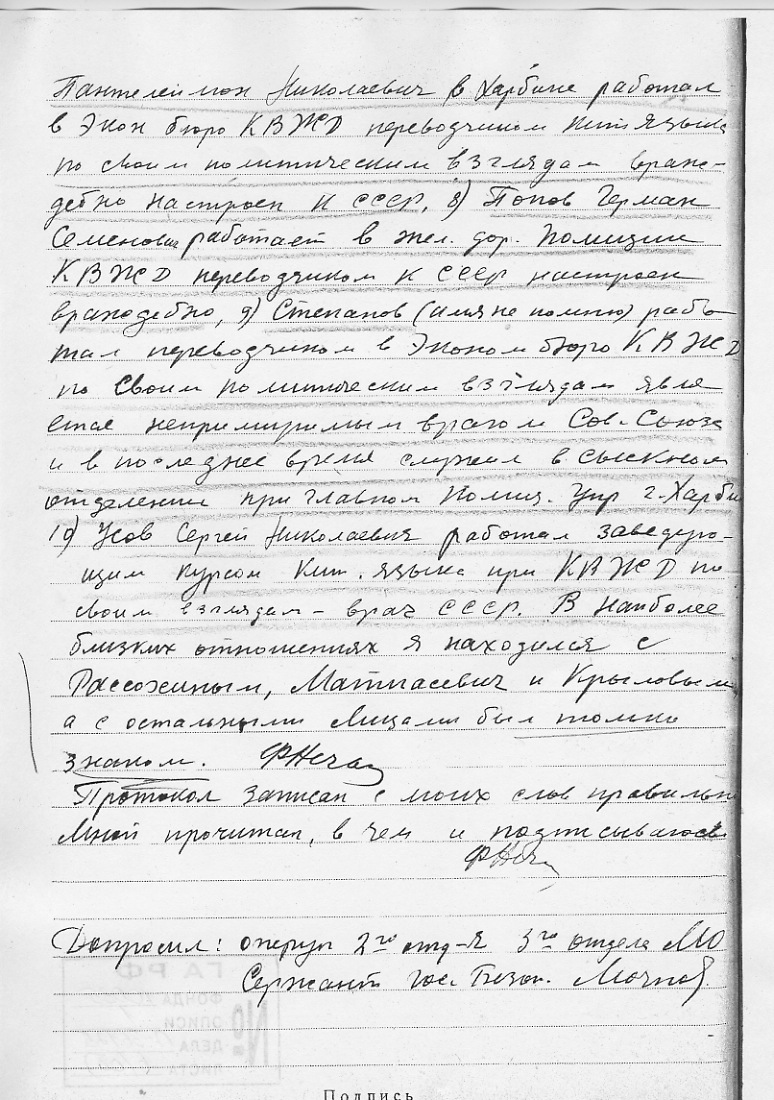 Пантелеймон Николаевич в Харбине работал
в Экон бюро КВЖД переводчиком кит языка
по своим политическим взглядам враж-
дебно настроен к СССР, 8) Попов Герман
Семенович работает в жел. дор. полиции
КВЖД переводчиком к СССР настроен
враждебно, 9) Степанов (имя не помню) рабо
тал переводчиком в Эконом бюро КВЖД
по своим политическим взглядам явля
ется непримиримым врагом Сов. Союза
и в последнее время служил в сыскном
отделении при главном полиц. Упр г. Харби
10) Усов Сергей Николаевич работал заведую-
щим курсом кит. языка при КВЖД по
своим взглядам - враг СССР. В наиболее
близких отношениях я находился с
Рассохиным, Матпасевич и Крыловым
а с остальными лицами был только
знаком.
Протокол записан с моих слов правильн
мной прочитан, в чем и подписываюсь
Допросил: оперуп 2го отд-я 3го отдела МО
Сержант гос. Безоп.
ГА РФ
ФОНДА
№ ОПИСИ
ДЕЛА
ЛИСТА
Подпись